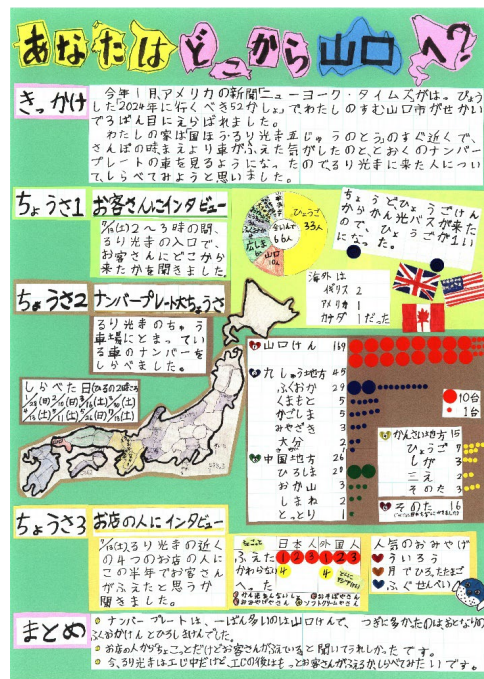 あなたはどこから山口へ？
きっかけ
今年1月、アメリカの新聞「ニューヨーク・タイムズ」がはっぴょう
した「2024年に行くべき52かしょ」でわたしのすむ山口市がせかい
で3ばん目にえらばれました。
わたしの家は国ほうるり光寺五じゅうのとうのすぐ近くで、
さんぽの時まえより車がふえた気がしたのと、とおくのナンバー
プレートの車を見るようになったので、るり光寺に来た人につい
て、しらべてみようと思いました。
ちょうさ1
お客さんにインタビュー
2〜3時の間、
るり光寺の入口で、
お客さんにどこから
来たかを聞きました。
ひょうご
33人
ぜんいんで
66人
山口
10人
ちょうどひょうごけん
からかん光バスが来た
ので、ひょうごが1い
になった。
海外は
イギリス 2
アメリカ 1
カナダ 1だった
ちょうさ2
ナンバープレート大ちょうさ
るり光寺のちゅう
車場にとまってい
る車のナンバーを
しらべました。
しらべた日(ひるの2時ごろ)
山口けん 169
九しゅう地方 45
ふくおか 29
くまもと 5
かごしま 5
みやざき 3
大分 2
中国地方 26
ひろしま 20
おか山 3
しまね 2
とっとり 1
10台
1台
かんさい地方 15
ひょうご 7
しが 3
三え 2
そのた 3
そのた 16
ちょうさ3
お店の人にインタビュー
るり光寺の近く
の4つのお店の人に
この半年でお客さん
がふえたと思うか
聞きました。
日本人 外国人
ふえた 1 2 3 1 2 3
かわらない 4 4
へった
人気のおみやげ
ういろう
月でひろったたまご
ふぐせんべい
まとめ
ナンバープレートは、一ばん多いのは山口けんで、つぎに多かったのはおとなりの
ふくおかけんとひろしまけんでした。
お店の人からちょっとだけどお客さんがふえていると聞いてうれしかったです。
今、るり光寺は工じ中だけど、工じの後はもっとお客さんがふえるか、しらべてみたいです。